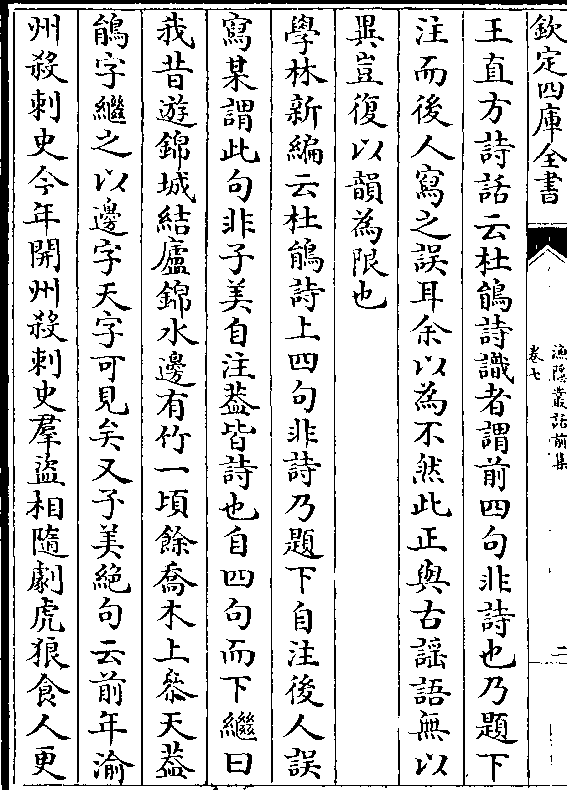 欽定四庫全書
漁隱叢話前集
卷七
二
王直方詩話云杜鵑詩識者謂前四句非詩也乃題下
注而後人寫之誤耳余以為不然此正與古謡語無以
異豈復以韻為限也
學林新編云杜鵑詩上四句非詩乃題下自注後人誤
寫某謂此句非子美自注葢皆詩也自四句而下繼曰
我昔遊錦城結廬錦水邊有竹一頃餘喬木上叅天葢
鵑字繼之以邊字天字可見矣又子美絶句云前年渝
州殺刺史今年開州殺刺史羣盜相隨劇虎狼食人更